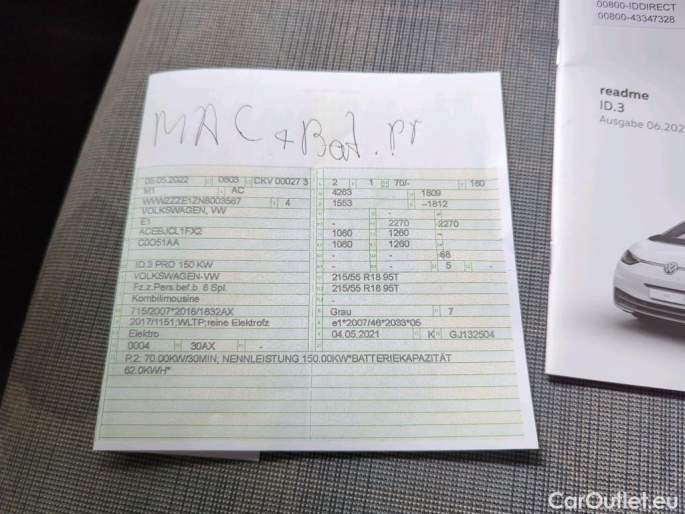 00800-IDDIRECT
00800-43347328
readme
ID.3
Ausgabe 06.202
MAC + Bat. pr
05.05.2022 0603 CKV 00027 3
M1 AC
WVWZZZE1ZN8003567 4
VOLKSWAGEN, VW
E1
ACEBJCL1FX2
C0O51AA
-
ID.3 PRO 150 KW
VOLKSWAGEN-VW
Fz.z.Pers.bef.b. 8 Spl.
Kombilimousine
715/2007*2018/1832AX
2017/1151;WLTP;reine Elektrofz
Elektro
0004 30AX -
2 1 70/- 160
4263 1809
1553 --1812
- -
- 2270 2270
1060 1260 -
1060 1260 -
- - 68
- - 5 -
215/55 R18 95T
215/55 R18 95T
-
Grau 7
e1*2007/46*2033*05
04.05.2021 K GJ132504
P.2: 70.00KW/30MIN; NENNLEISTUNG 150.00KW*BATTERIEKAPAZITÄT
62.0KWH*
CarOutlet.eu